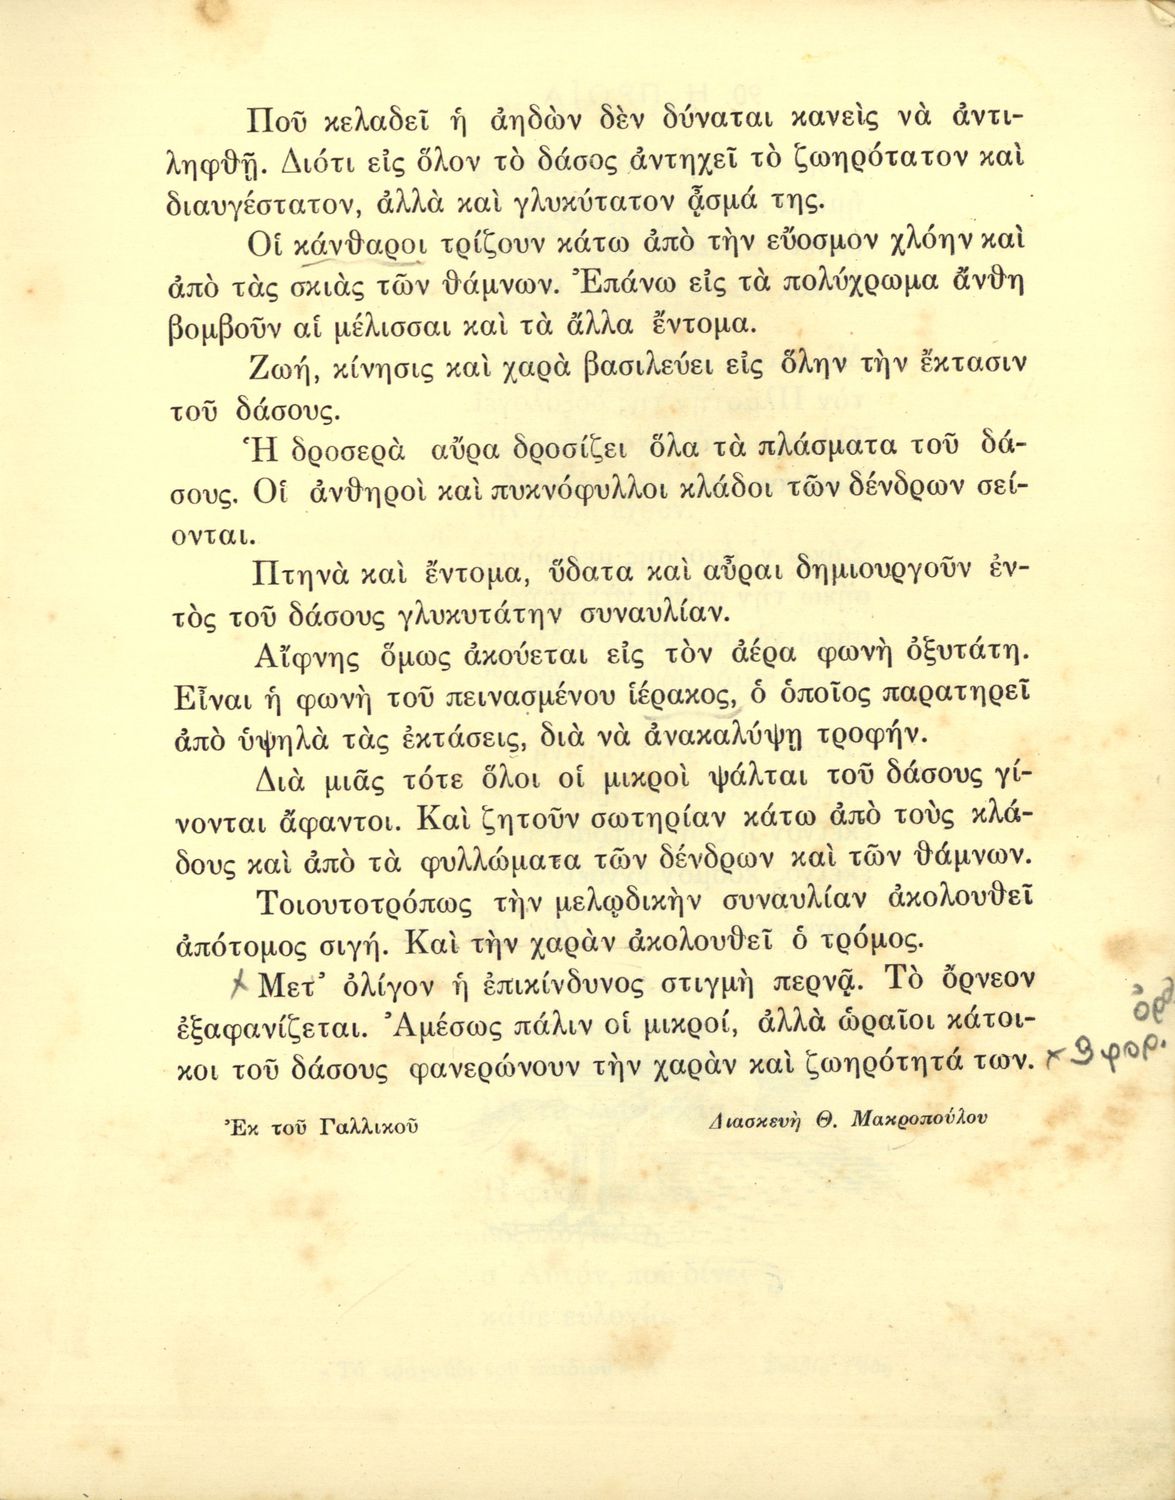 Ποῦ κελαδεῖ ἡ ἀηδὼν δὲν δύναται κανεὶς νὰ ἀντι-
ληφθῇ. Διότι εἰς ὅλον τὸ δάσος ἀντηχεῖ τὸ ζωηρότατον καὶ
διαυγέστατον, ἀλλὰ καὶ γλυκύτατον ᾆσμά της.
Οἱ κάνθαροι τρίζουν κάτω ἀπὸ τὴν εὔοσμον χλόην καὶ
ἀπὸ τὰς σκιὰς τῶν θάμνων. Ἐπάνω εἰς τὰ πολύχρωμα ἄνθη
βομβοῦν αἱ μέλισσαι καὶ τὰ ἄλλα ἔντομα.
Ζωή, κίνησις καὶ χαρὰ βασιλεύει εἰς ὅλην τὴν ἔκτασιν
τοῦ δάσους.
Ἡ δροσερὰ αὔρα δροσίζει ὅλα τὰ πλάσματα τοῦ δά-
σους. Οἱ ἀνθηροὶ καὶ πυκνόφυλλοι κλάδοι τῶν δένδρων σεί-
ονται.
Πτηνὰ καὶ ἔντομα, ὕδατα καὶ αὖραι δημιουργοῦν ἐν-
τὸς τοῦ δάσους γλυκυτάτην συναυλίαν.
Αἴφνης ὅμως ἀκούεται εἰς τὸν ἀέρα φωνὴ ὀξυτάτη.
Εἶναι ἡ φωνὴ τοῦ πεινασμένου ἱέρακος, ὁ ὁποῖος παρατηρεῖ
ἀπὸ ὑψηλὰ τὰς ἐκτάσεις, διὰ νὰ ἀνακαλύψῃ τροφήν.
Διὰ μιᾶς τότε ὅλοι οἱ μικροὶ ψάλται τοῦ δάσους γί-
νονται ἄφαντοι. Καὶ ζητοῦν σωτηρίαν κάτω ἀπὸ τοὺς κλά-
δους καὶ ἀπὸ τὰ φυλλώματα τῶν δένδρων καὶ τῶν θάμνων.
Τοιουτοτρόπως τὴν μελῳδικὴν συναυλίαν ἀκολουθεῖ
ἀπότομος σιγή. Καὶ τὴν χαρὰν ἀκολουθεῖ ὁ τρόμος.
Μετ’ ὀλίγον ἡ ἐπικίνδυνος στιγμὴ περνᾷ. Τὸ ὄρνεον
ἐξαφανίζεται. Ἀμέσως πάλιν οἱ μικροί, ἀλλὰ ὡραῖοι κάτοι-
κοι τοῦ δάσους φανερώνουν τὴν χαρὰν καὶ ζωηρότητά των.
Ἐκ τοῦ Γαλλικοῦ
Διασκευὴ Θ. Μακροπούλου